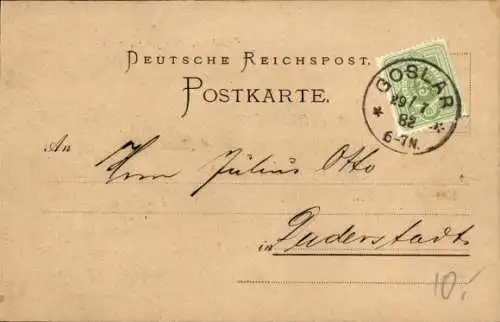 DEUTSCHE REICHSPOST.
POSTKARTE.
GOSLAR
29/7
82
6-7N.
An Herrn Julius Otto
in Duderstadt
10.